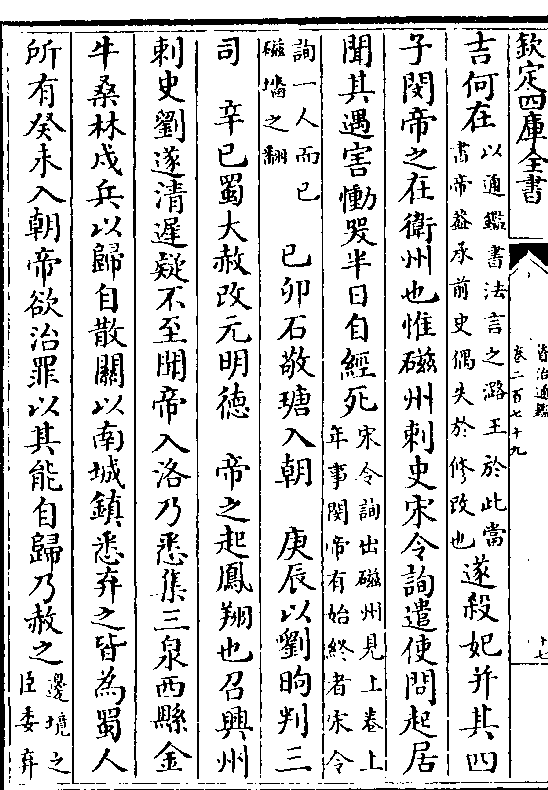 欽定四庫全書
資治通鑑
卷二百七十九
十七
吉何在以通鑑書法言之潞王於此當
書帝蓋承前史偶失於修改也遂殺妃并其四
子閔帝之在衛州也惟磁州刺史宋令詢遣使問起居
聞其遇害慟哭半日自經死宋令詢出磁州見上卷上
年事閔帝有始終者宋令
詢一人而已
磁墻之翻己卯石敬瑭入朝　庚辰以劉昫判三
司　辛巳蜀大赦改元明德　帝之起鳳翔也召興州
刺史劉遂清遲疑不至聞帝入洛乃悉集三泉西縣金
牛桑林戍兵以歸自散關以南城鎮悉弃之皆為蜀人
所有癸未入朝帝欲治罪以其能自歸乃赦之邊境之
臣委弃